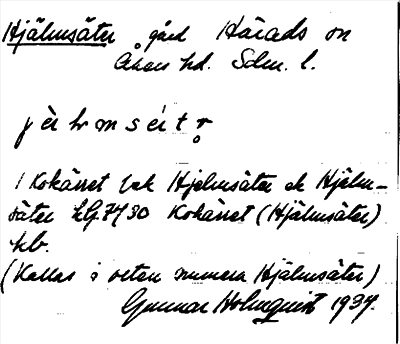 Hjälmsäter gård Härads sn
Åkers hd. Sdm. l.
jèlmséitr
1 Kokärret
Hjelmsäter ck Hjelm-
säter LG 7/30 Kokärret (Hjälmsäter)
hb.
(Kallas i orten numera Hjälmsäter)
Gunnar Holmquist 1934.